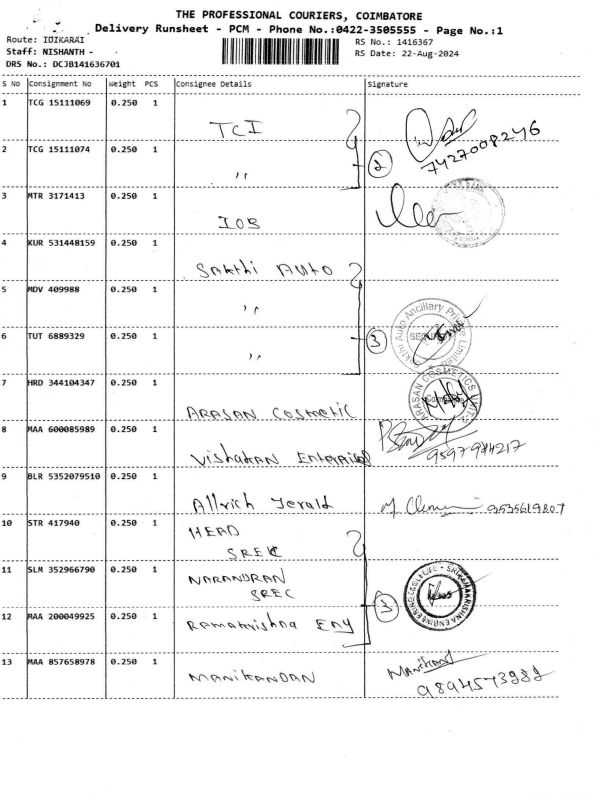 THE PROFESSIONAL COURIERS, COIMBATORE
Delivery Runsheet - PCM - Phone No.:0422-3505555 - Page No.:1
Route: IDIKARAI
RS No.: 1416367
Staff: NISHANTH -
RS Date: 22-Aug-2024
DRS No.: DCJB141636701
S No Consignment No Weight PCS Consignee Details Signature
1 TCG 15111069 0.250 1 TCI
2 TCG 15111074 0.250 1 " 2 7427008246
3 MTR 3171413 0.250 1 IOB
4 KUR 531448159 0.250 1 Sakthi Auto
5 MDV 409988 0.250 1 "
6 TUT 6889329 0.250 1 " 3
7 HRD 344104347 0.250 1 ARASAN COSMETIC
ARASAN COSMETICS
8 MAA 600085989 0.250 1 Vishakan Enterprises
9 BLR 5352079510 0.250 1 Allrich Jerald
10 STR 417940 0.250 1 HEAD
SREC
11 SLM 352966790 0.250 1 NARANDRAN
SREC
12 MAA 200049925 0.250 1 Ramakrishna Eny 3
13 MAA 857658978 0.250 1 MANIKANDAN